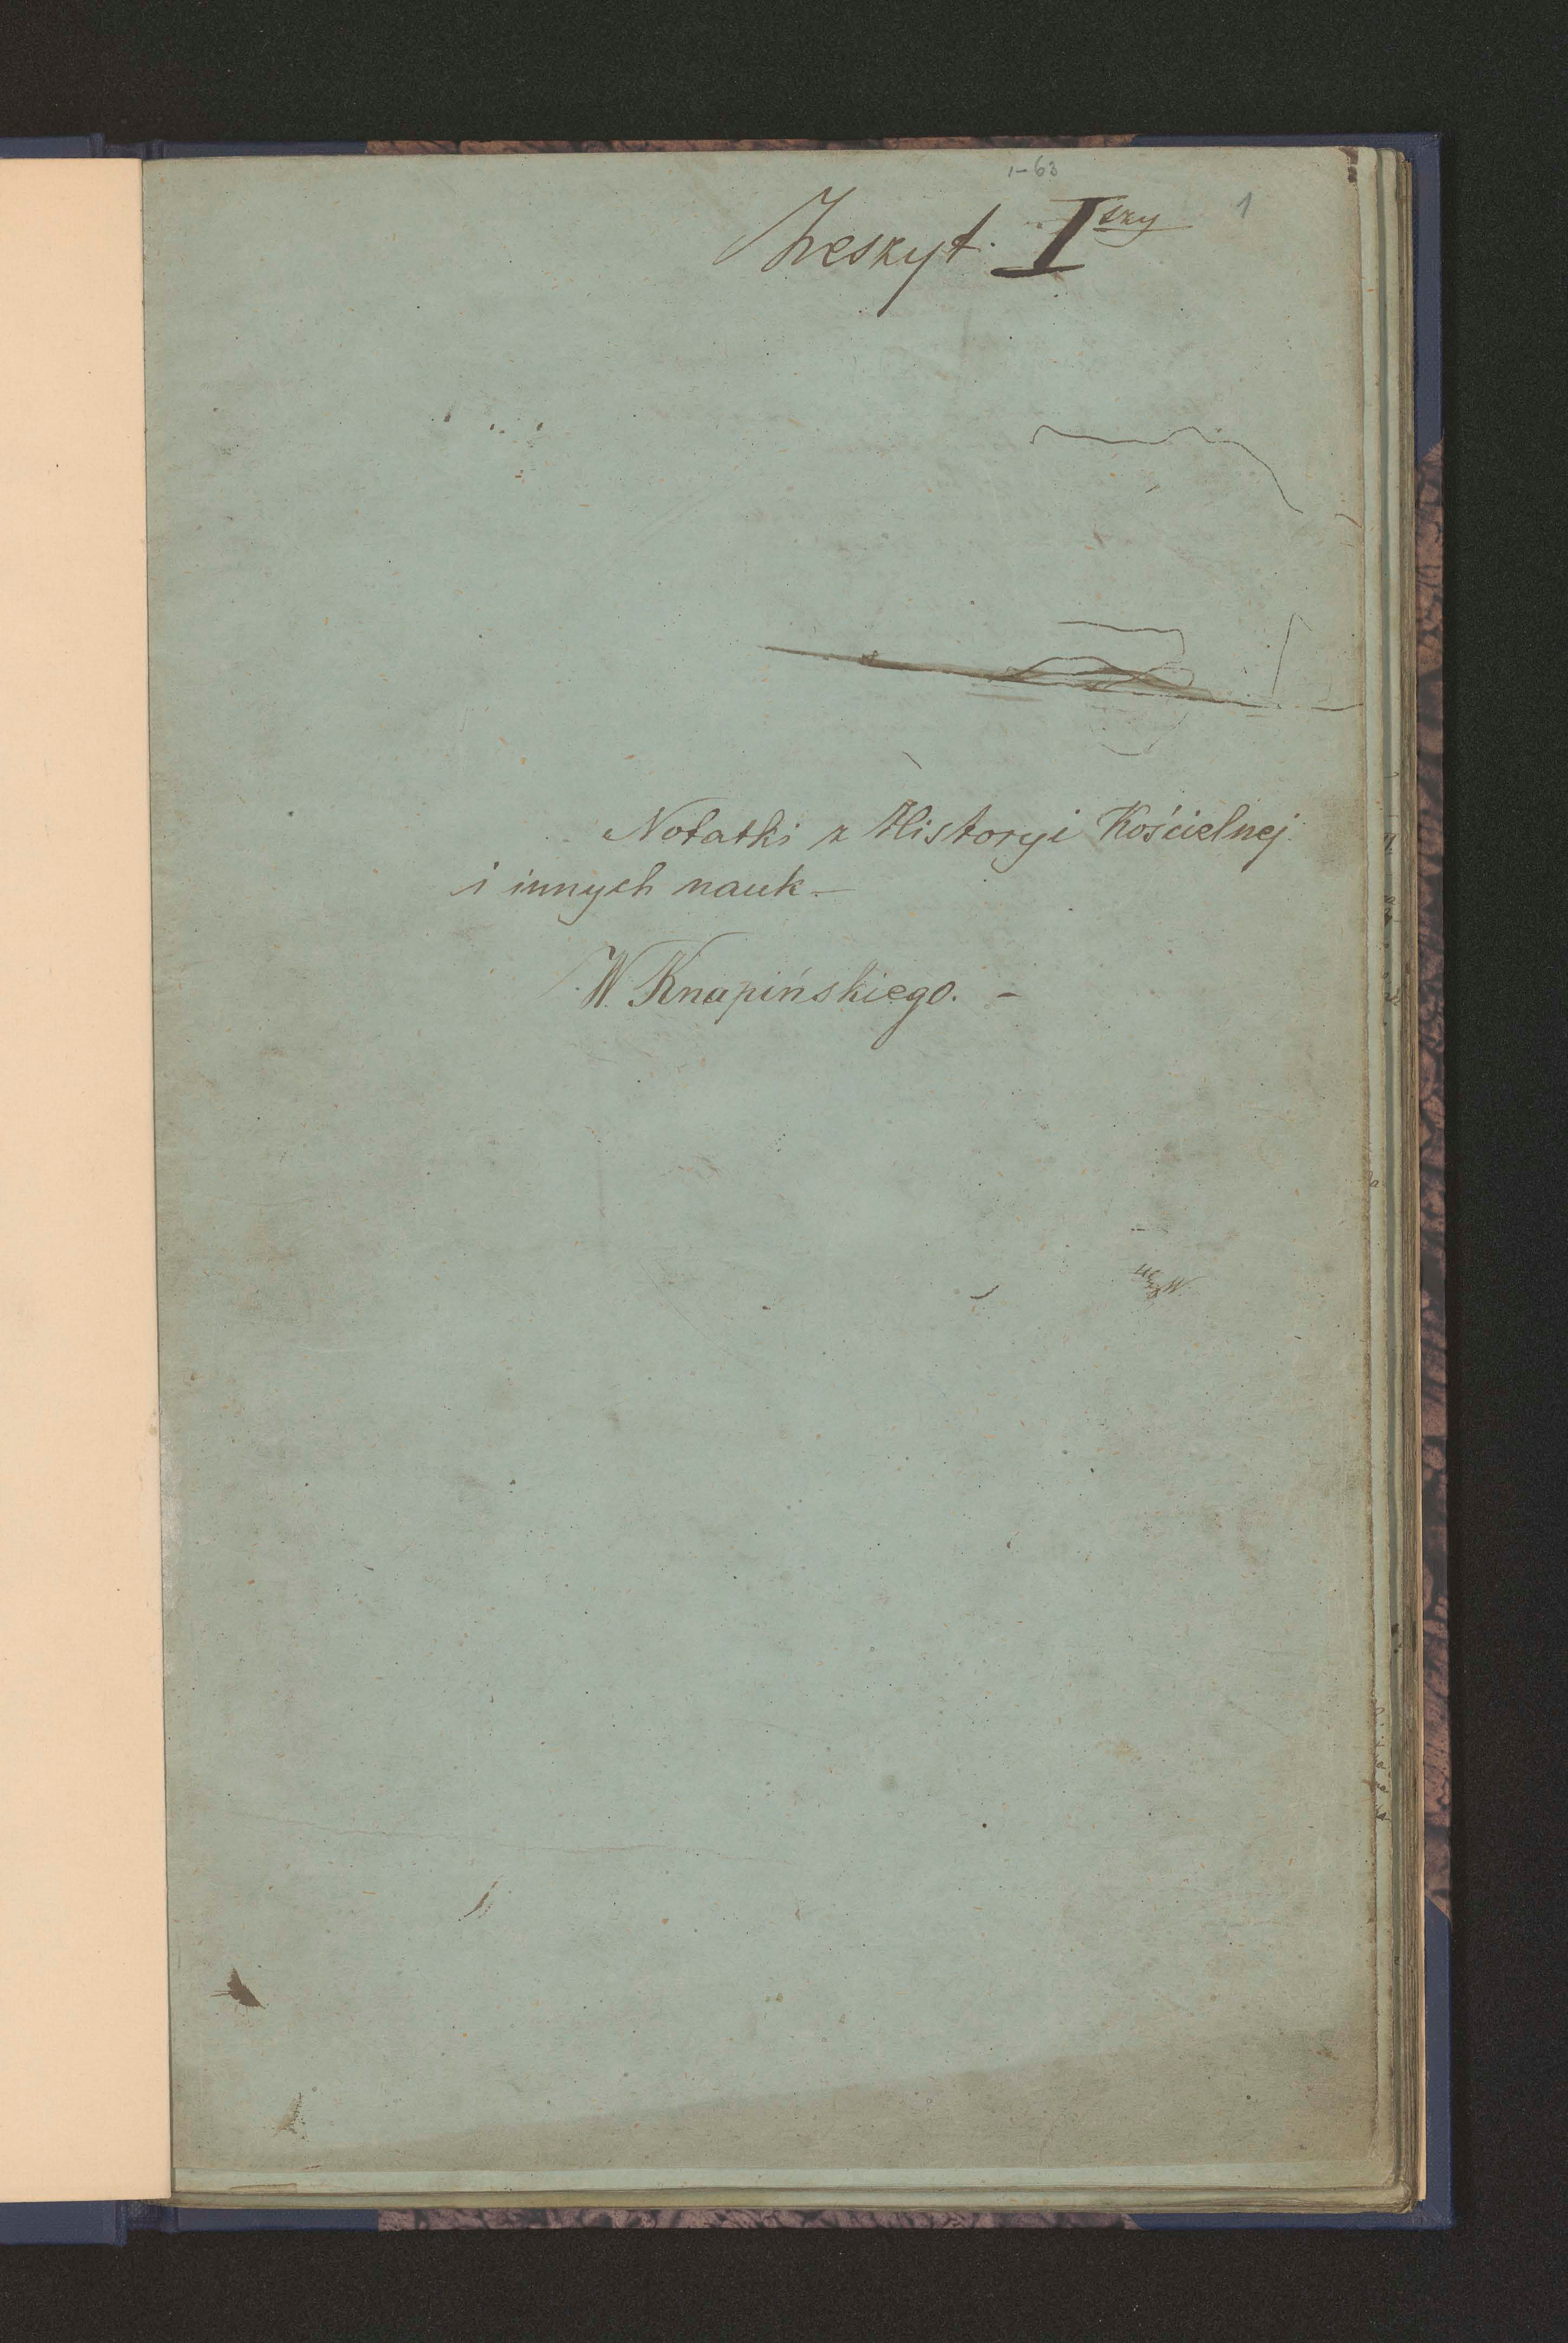 1–63
1
Zeszyt. I szy
Notatki z Historyi Kościelnej
i innych nauk –
W. Knapińskiego. –